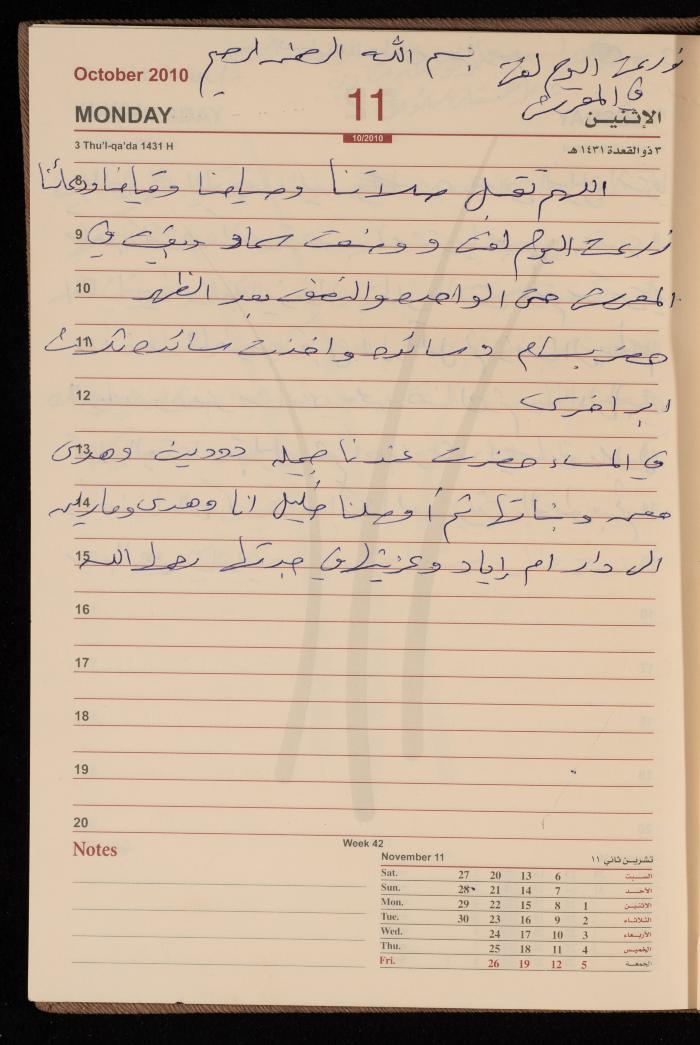 October 2010
بسم الله الرحمن الرحيم
زرعت اليوم لفت
في المعرش
MONDAY
11
الإثنين
10/2010
3 Thu'l-qa'da 1431 H
٣ ذو القعدة ١٤٣١ هـ
8 اللهم تقبل صلاتنا وصيامنا وقيامنا ودعائنا
9 زرعت اليوم لفت و وضعت سماد وبقيت في
10 المعرش حتى الواحده والنصف بعد الظهر
11 حضر بسام وسائده واخذت سائده ثلاث
12 ابر اخرى
13 في المساء حضرت عندنا جميله دودين وهدى
14 وبناتها ثم أوصلنا خليل انا وهدى
15 الى دار ام إياد وعزيتها في جدتها رحمها الله
16
17
18
19
20
Notes
Week 42
November 11
تشرين ثاني ١١
Sat. 27 20 13 6 السبت
Sun. 28 21 14 7 الأحد
Mon. 29 22 15 8 1 الاثنين
Tue. 30 23 16 9 2 الثلاثاء
Wed. 24 17 10 3 الأربعاء
Thu. 25 18 11 4 الخميس
Fri. 26 19 12 5 الجمعة